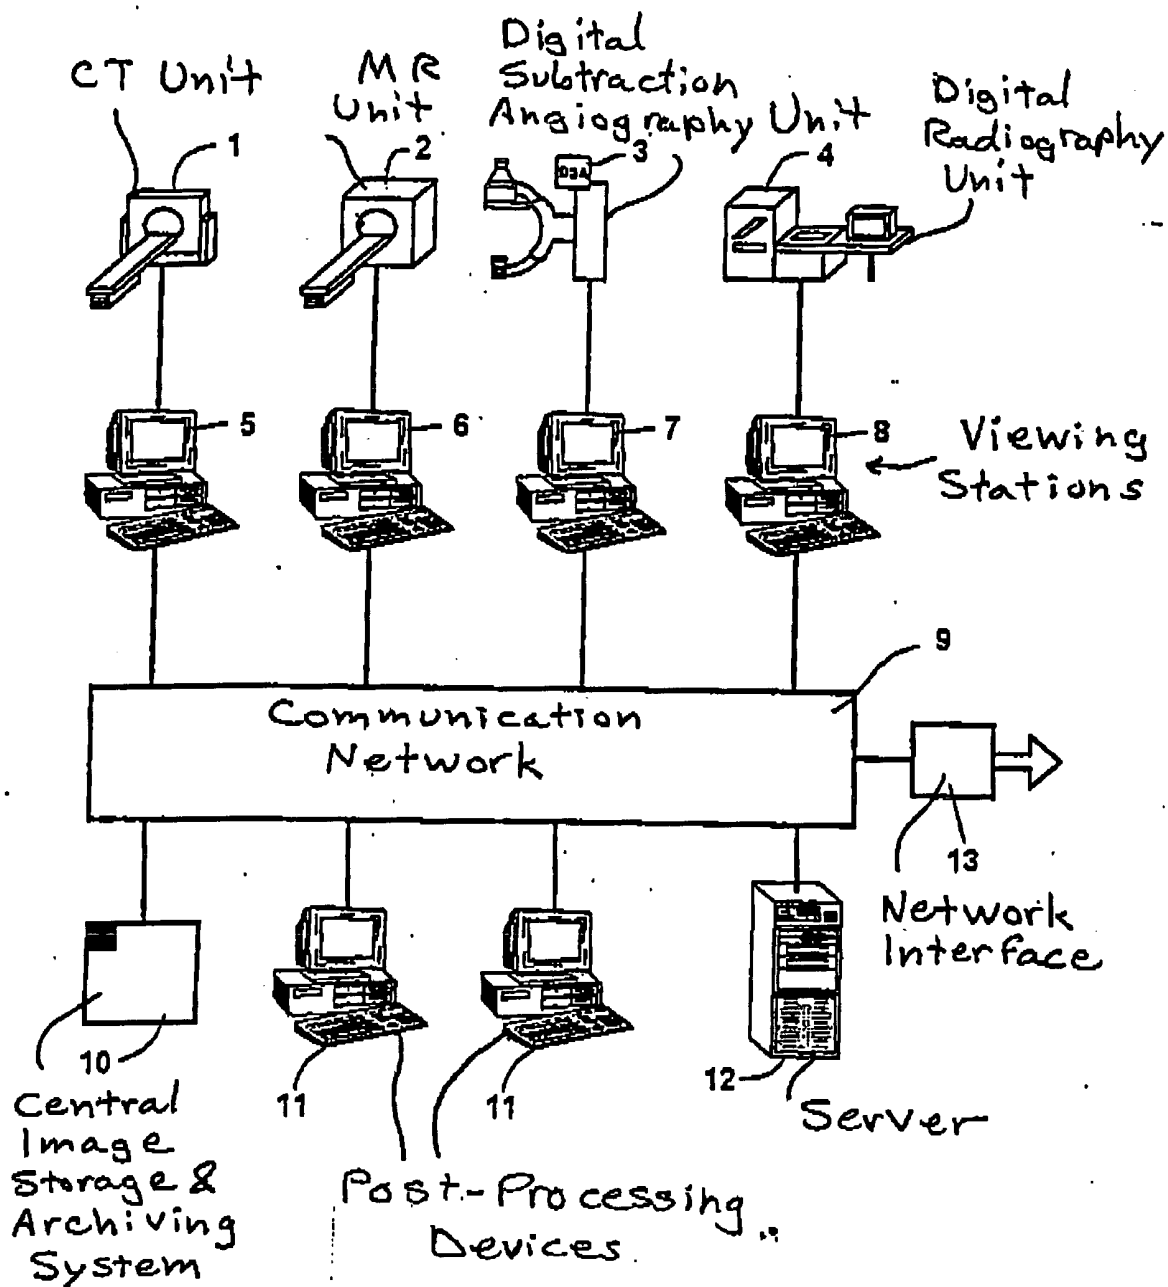 CT Unit
MR
Unit
Digital
Subtraction
Angiography Unit
Digital
Radiography
Unit
1
2
3
DSA
4
5
6
7
8
Viewing
Stations
9
Communication
Network
13
Network
Interface
10
Central
Image
Storage &
Archiving
System
11
11
Post-Processing
Devices
12
Server